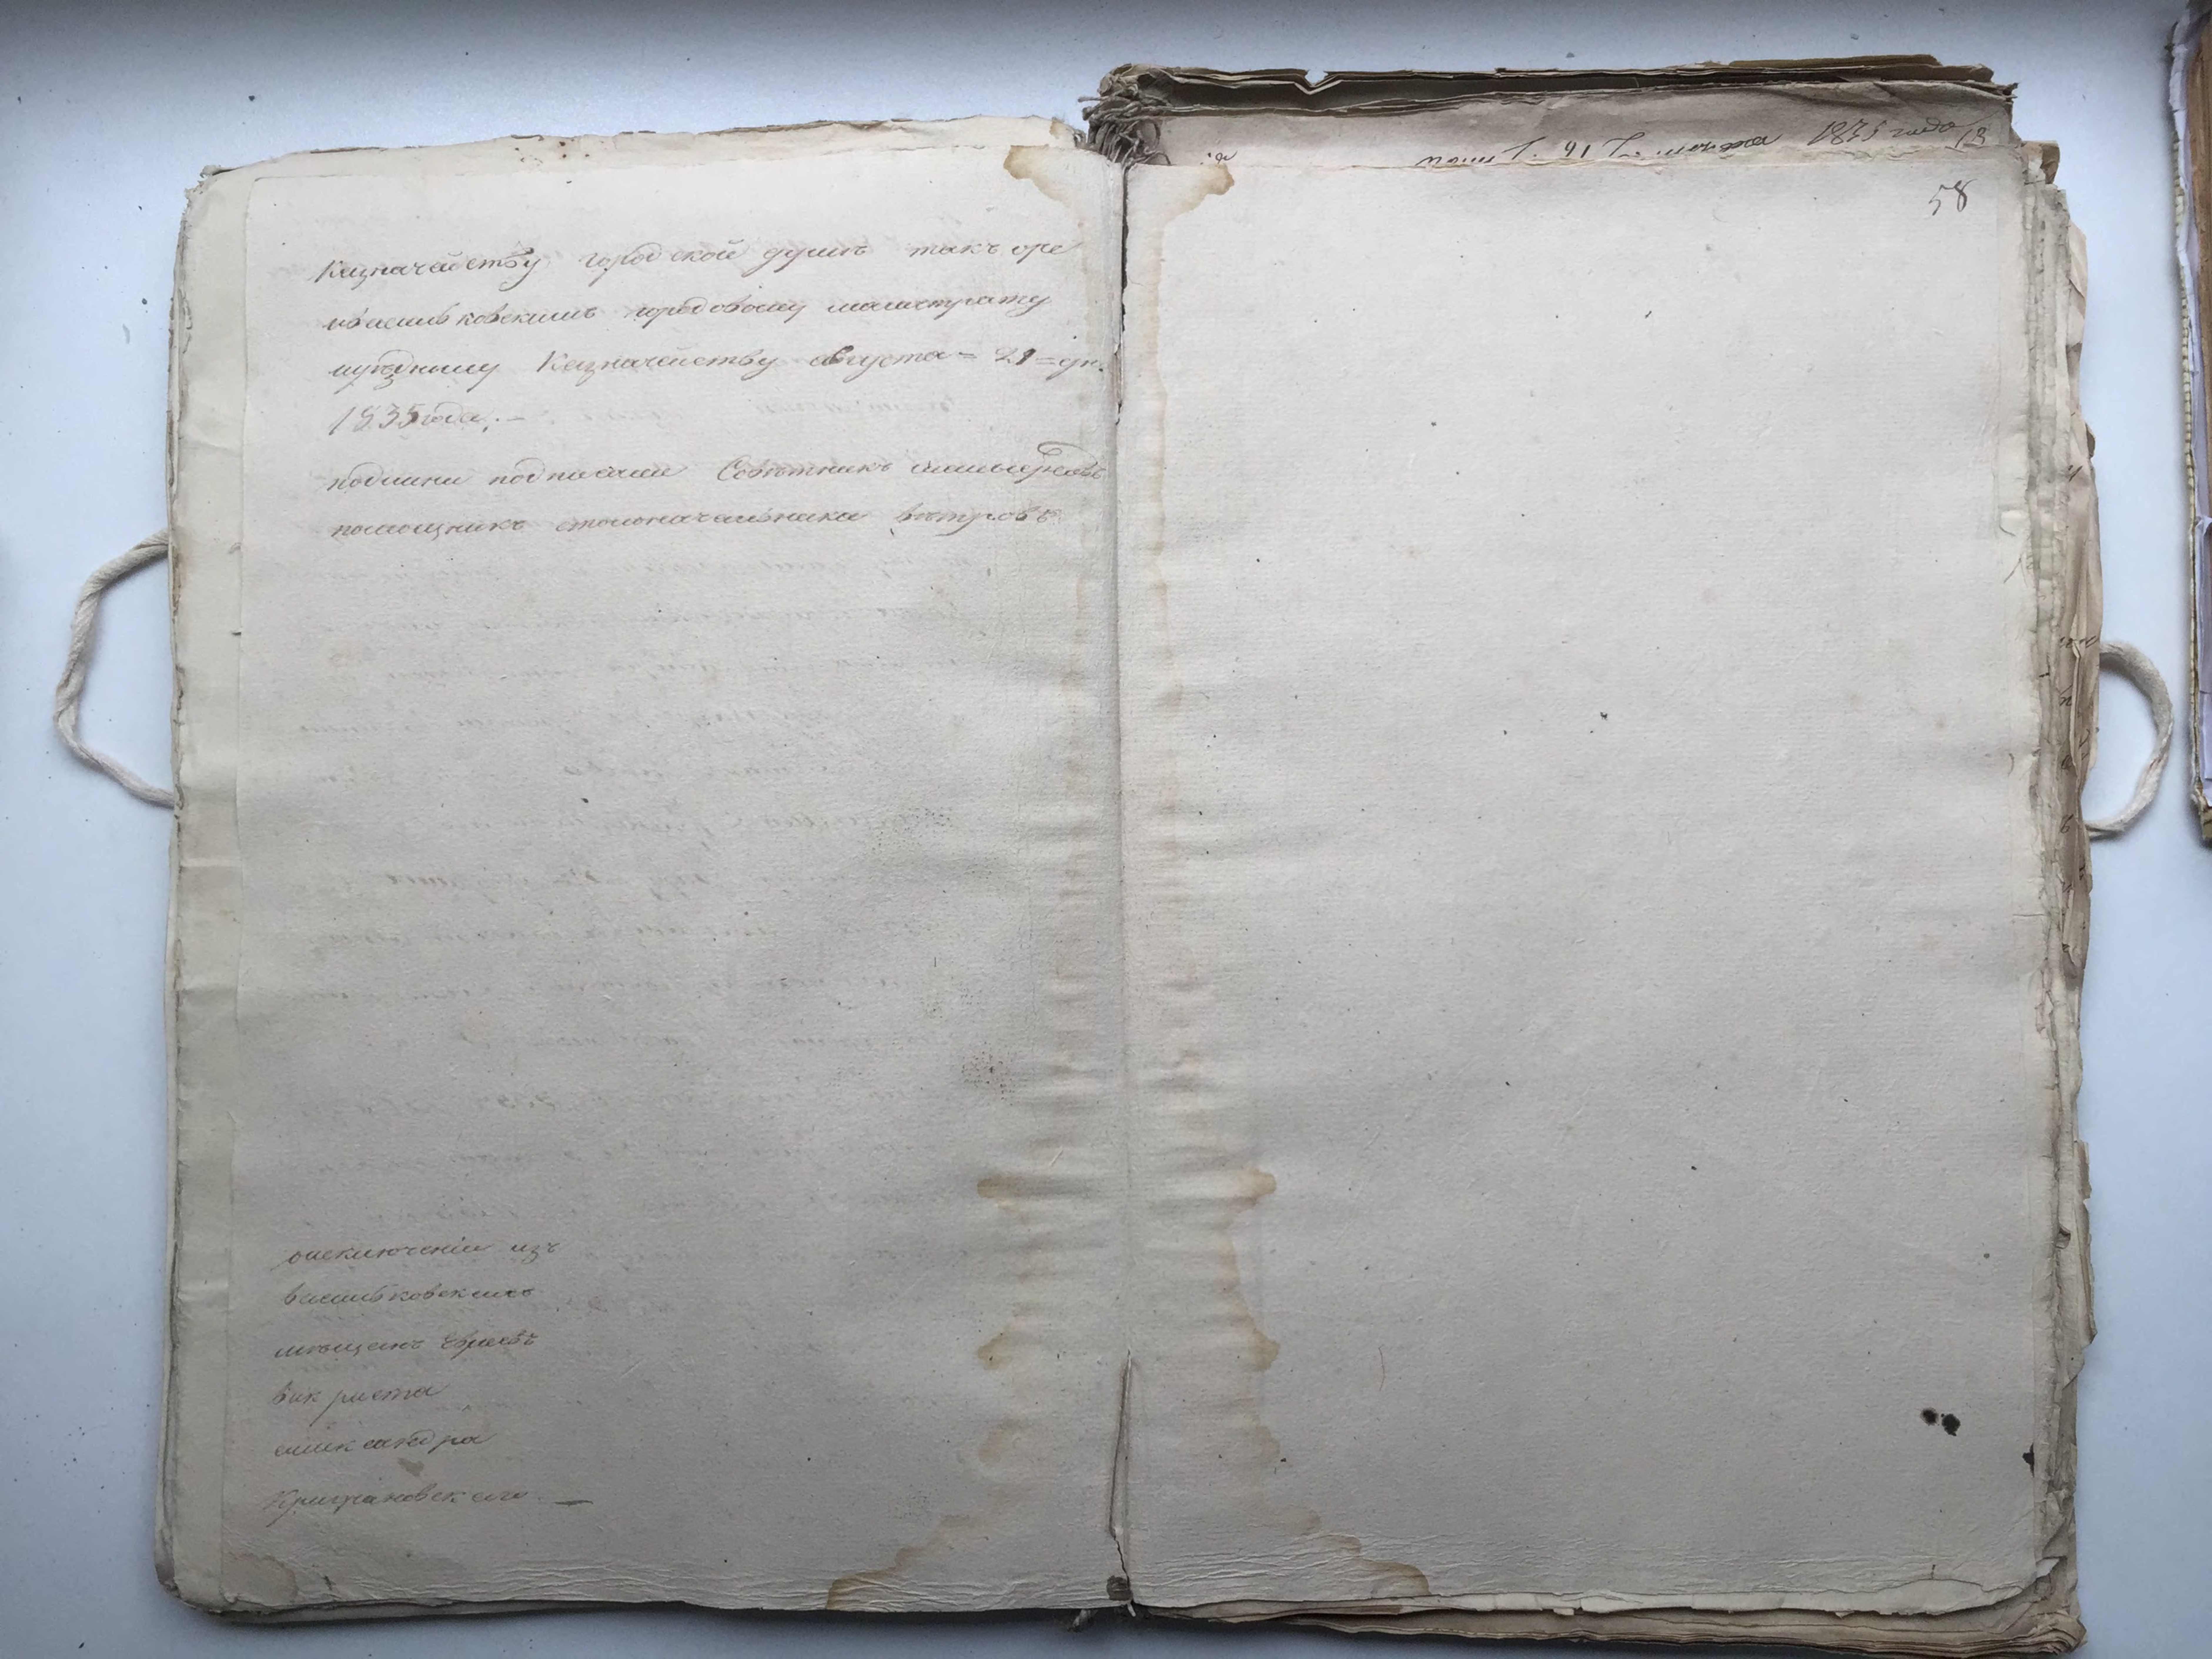 Казначейству городской думѣ такъ же
ивасильковскимъ городовому магистрату
иуѣздному Казначейству августа = 21 = дн.
1835 года; –
подлини подписали Совѣтникъ
помощникъ столоначальника вѣтровъ
оисключеніи изъ
васильковскихъ
мѣщанъ Евреевъ
выкреста
александра
Крижановского —
1835 года
13
58